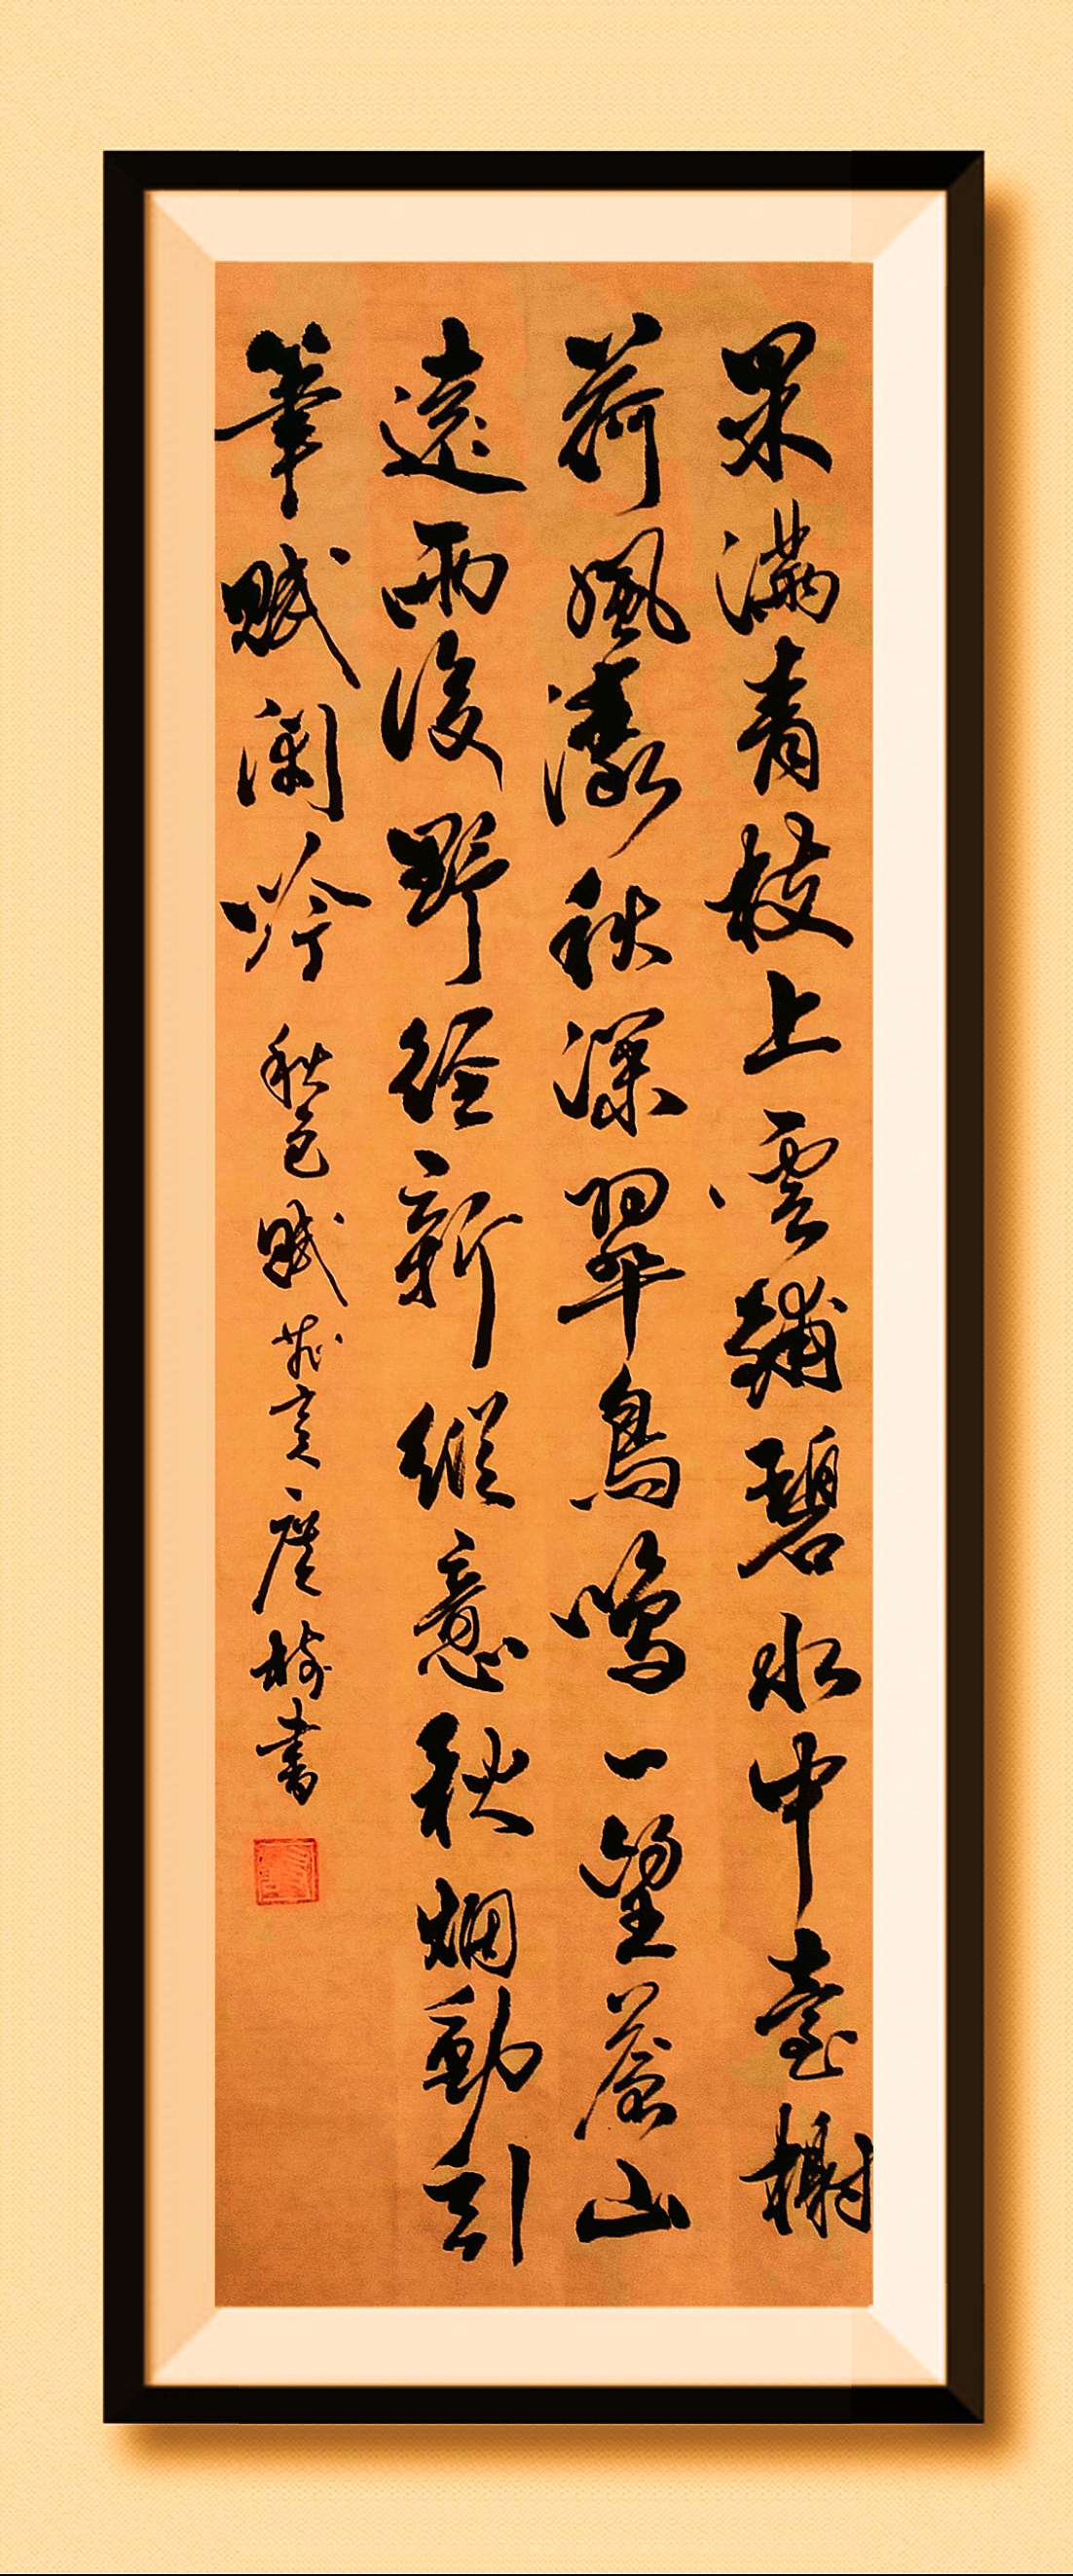 果滿青枝上雲鋪碧水中臺榭
荷風秋深翠鳥鳴一望蒼山
遠雨後野徑新縱意秋烟動引
筆賦闌吟
秋色賦 亥 樹書